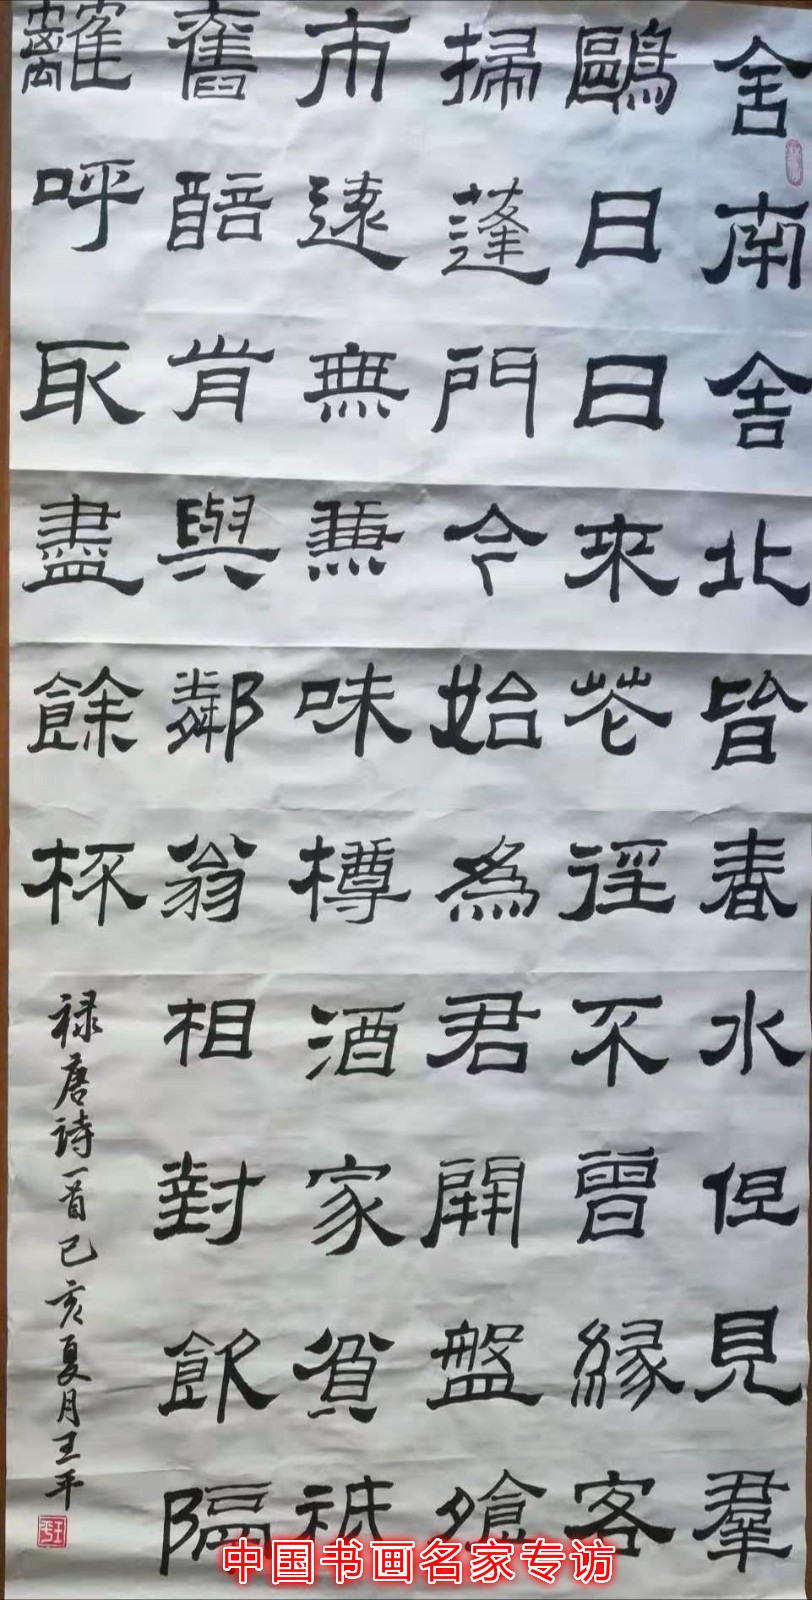 舍南舍北皆春水但見羣
鷗日日來花徑不曾緣客
掃蓬門今始為君開盤飧
市遠無兼味樽酒家貧祗
舊醅肯與鄰翁相對飲隔
離呼取盡餘杯
禄唐诗一首己亥夏月王平
王平
中国书画名家专访